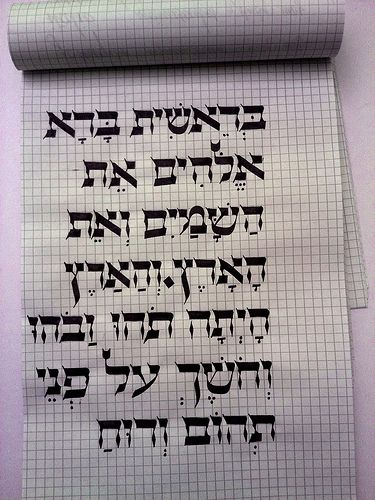 בְּרֵאשִׁית בָּרָא
אֱלֹהִים אֵת
הַשָּׁמַיִם וְאֵת
הָאָרֶץ.וְהָאָרֶץ
הָיְתָה תֹהוּ וָבֹהוּ
וְחֹשֶׁךְ עַל פְּנֵי
תְהוֹם וְרוּחַ